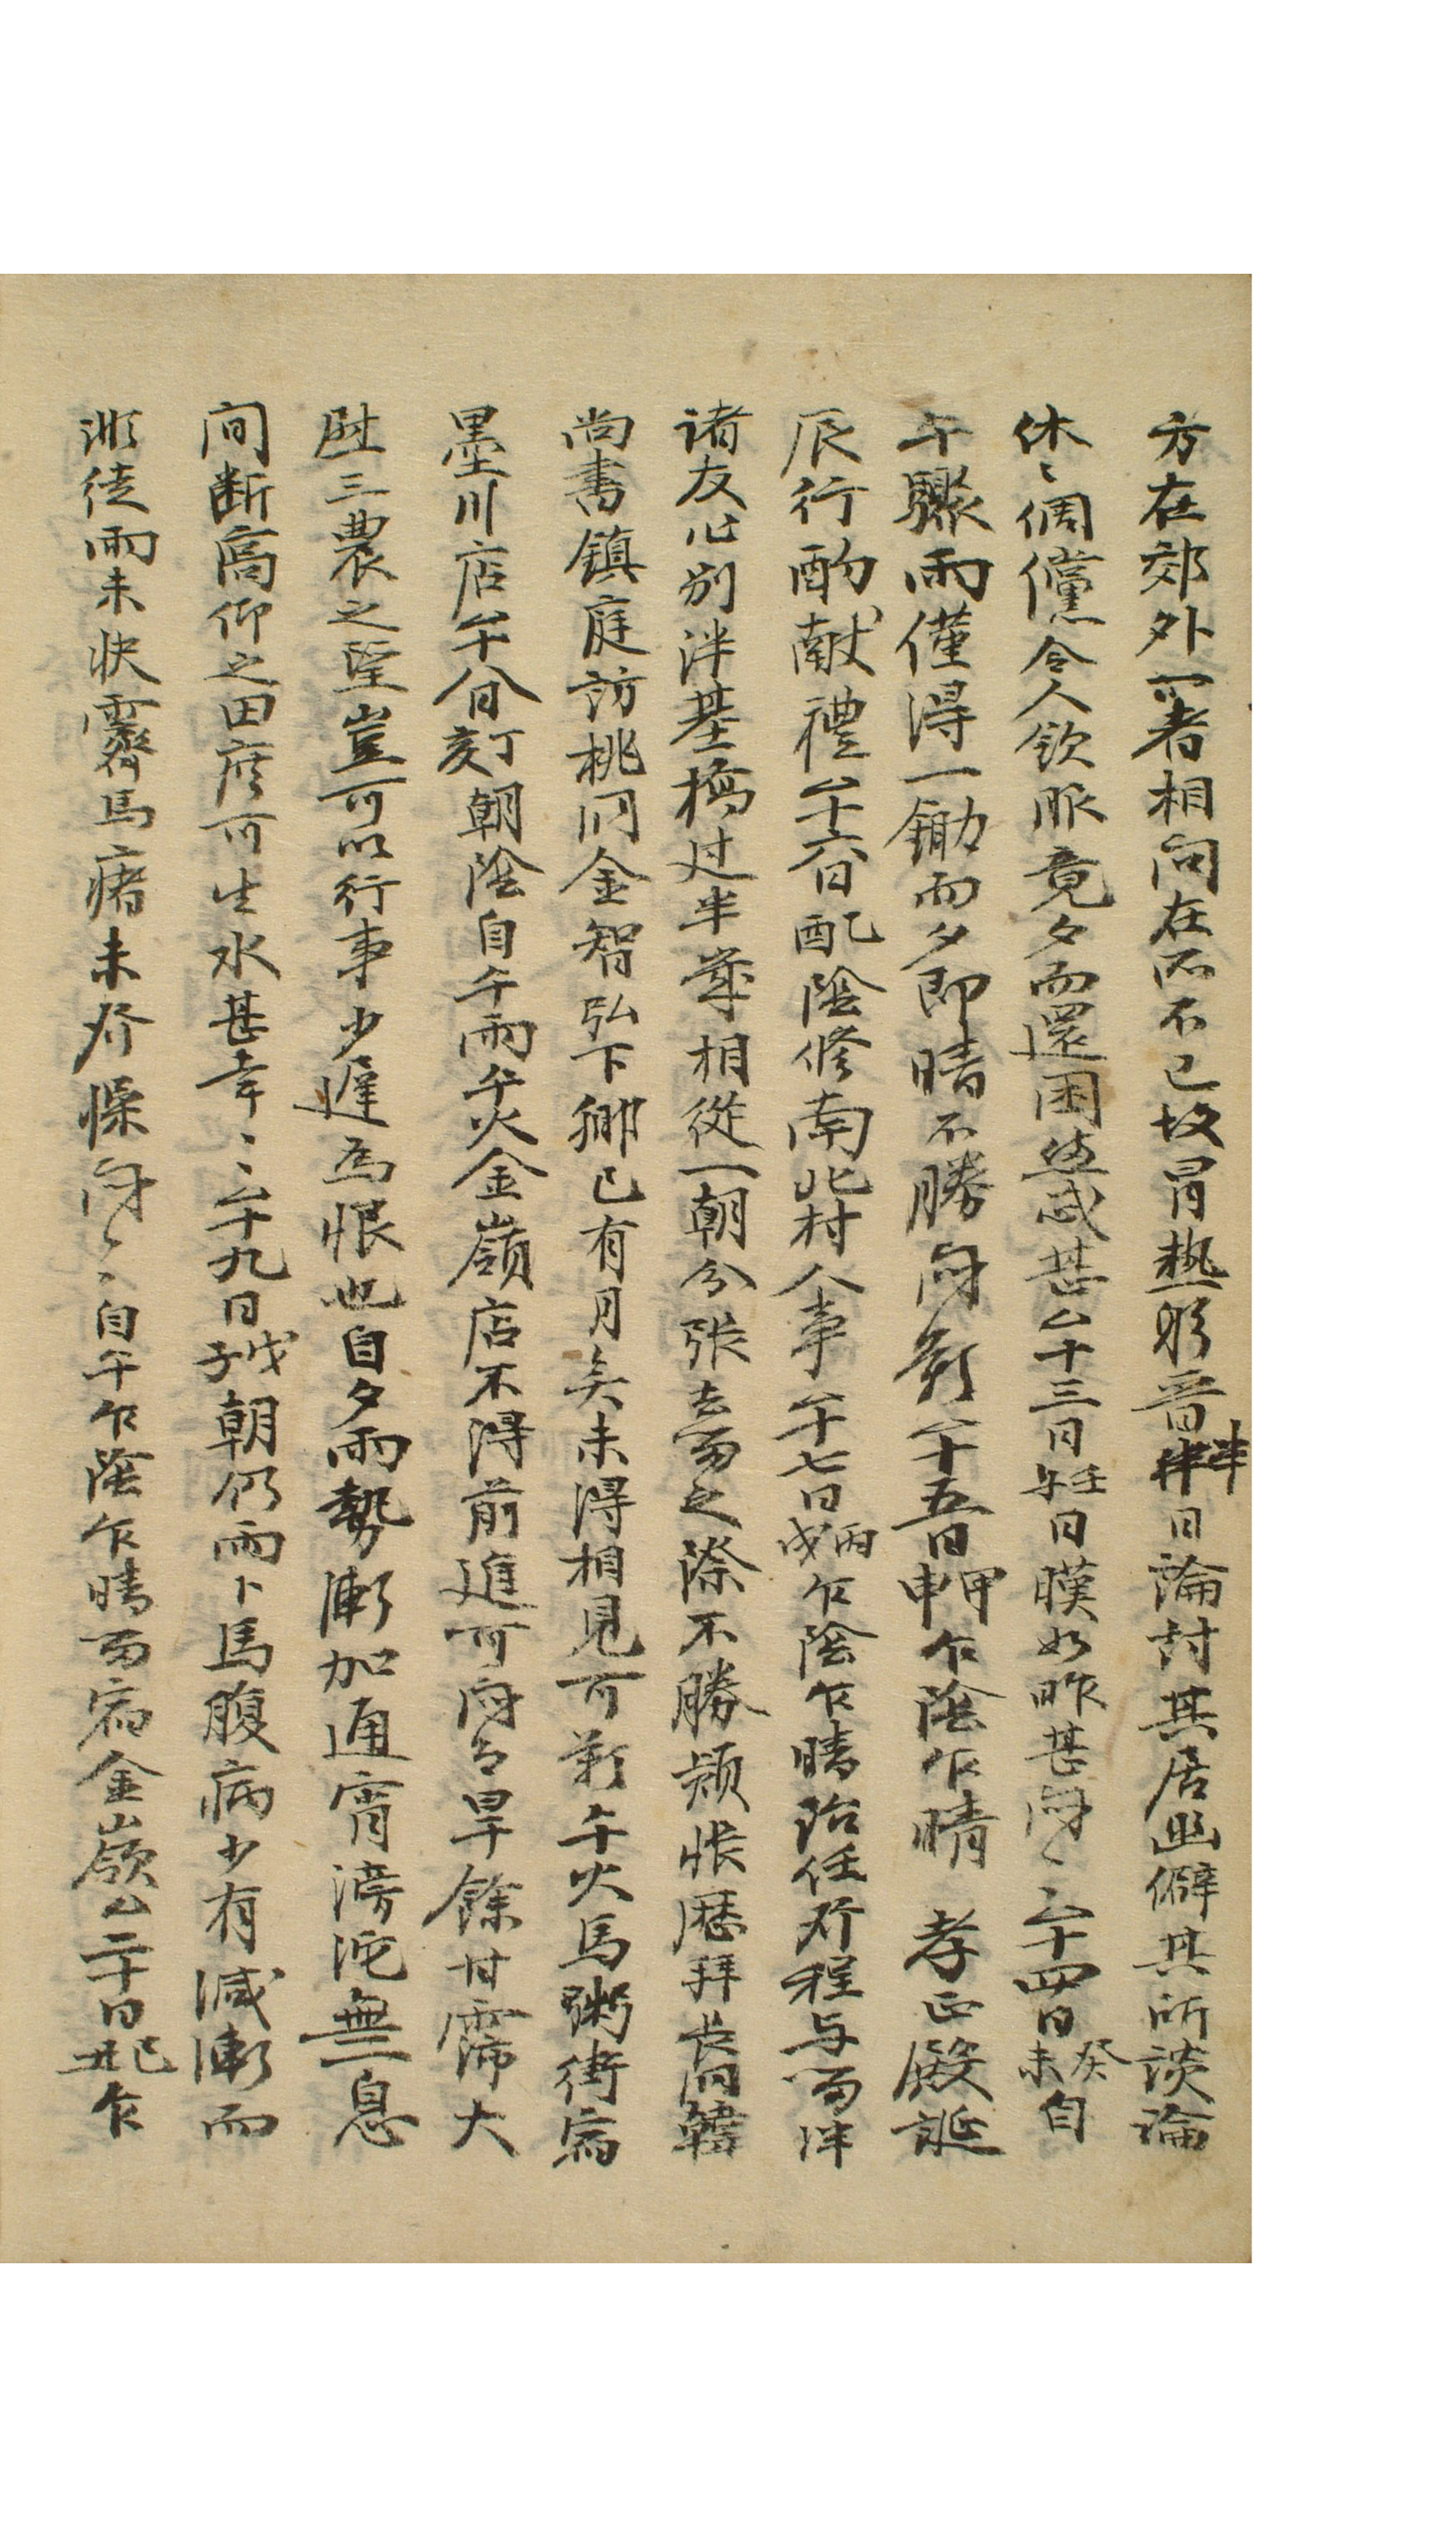 方在郊外一者相向在而不已故冒熱形晉半日論討其居幽僻其所談論
休〻倜儻令人欽服竟夕而還困憊忒甚二十三日壬午日暵如昨甚悶〻二十四日癸未自
午驟雨僅得一鋤而夕即晴不勝悶歎二十五日甲申乍陰乍晴 孝正殿誕
辰行酌献禮二十六日乙酉陰修南北村人事二十七日丙戌乍陰乍晴治任行程与留泮
诸友心別泮基橋过半歲相從一朝分張去留之際不勝頫悵歷拜長洞韓
尚書鎮庭訪桃洞金智弘下鄉已有月矣未得相見可歎午火馬粥街宿
墨川店二十八日丁亥朝陰自午雨午火金嶺店不得前進可悶旱餘甘霈大
跬三農之望豈可以行事少遲為恨也自夕雨勢漸加通宵滂沱無息
间断高仰之田庶可生水甚幸〻二十九日戊子朝仍雨卜馬腹病少有減漸而
淵徒雨未快霽馬瘏未疗憏悶〻自午乍陰乍晴而宿金嶺三十日己丑乍